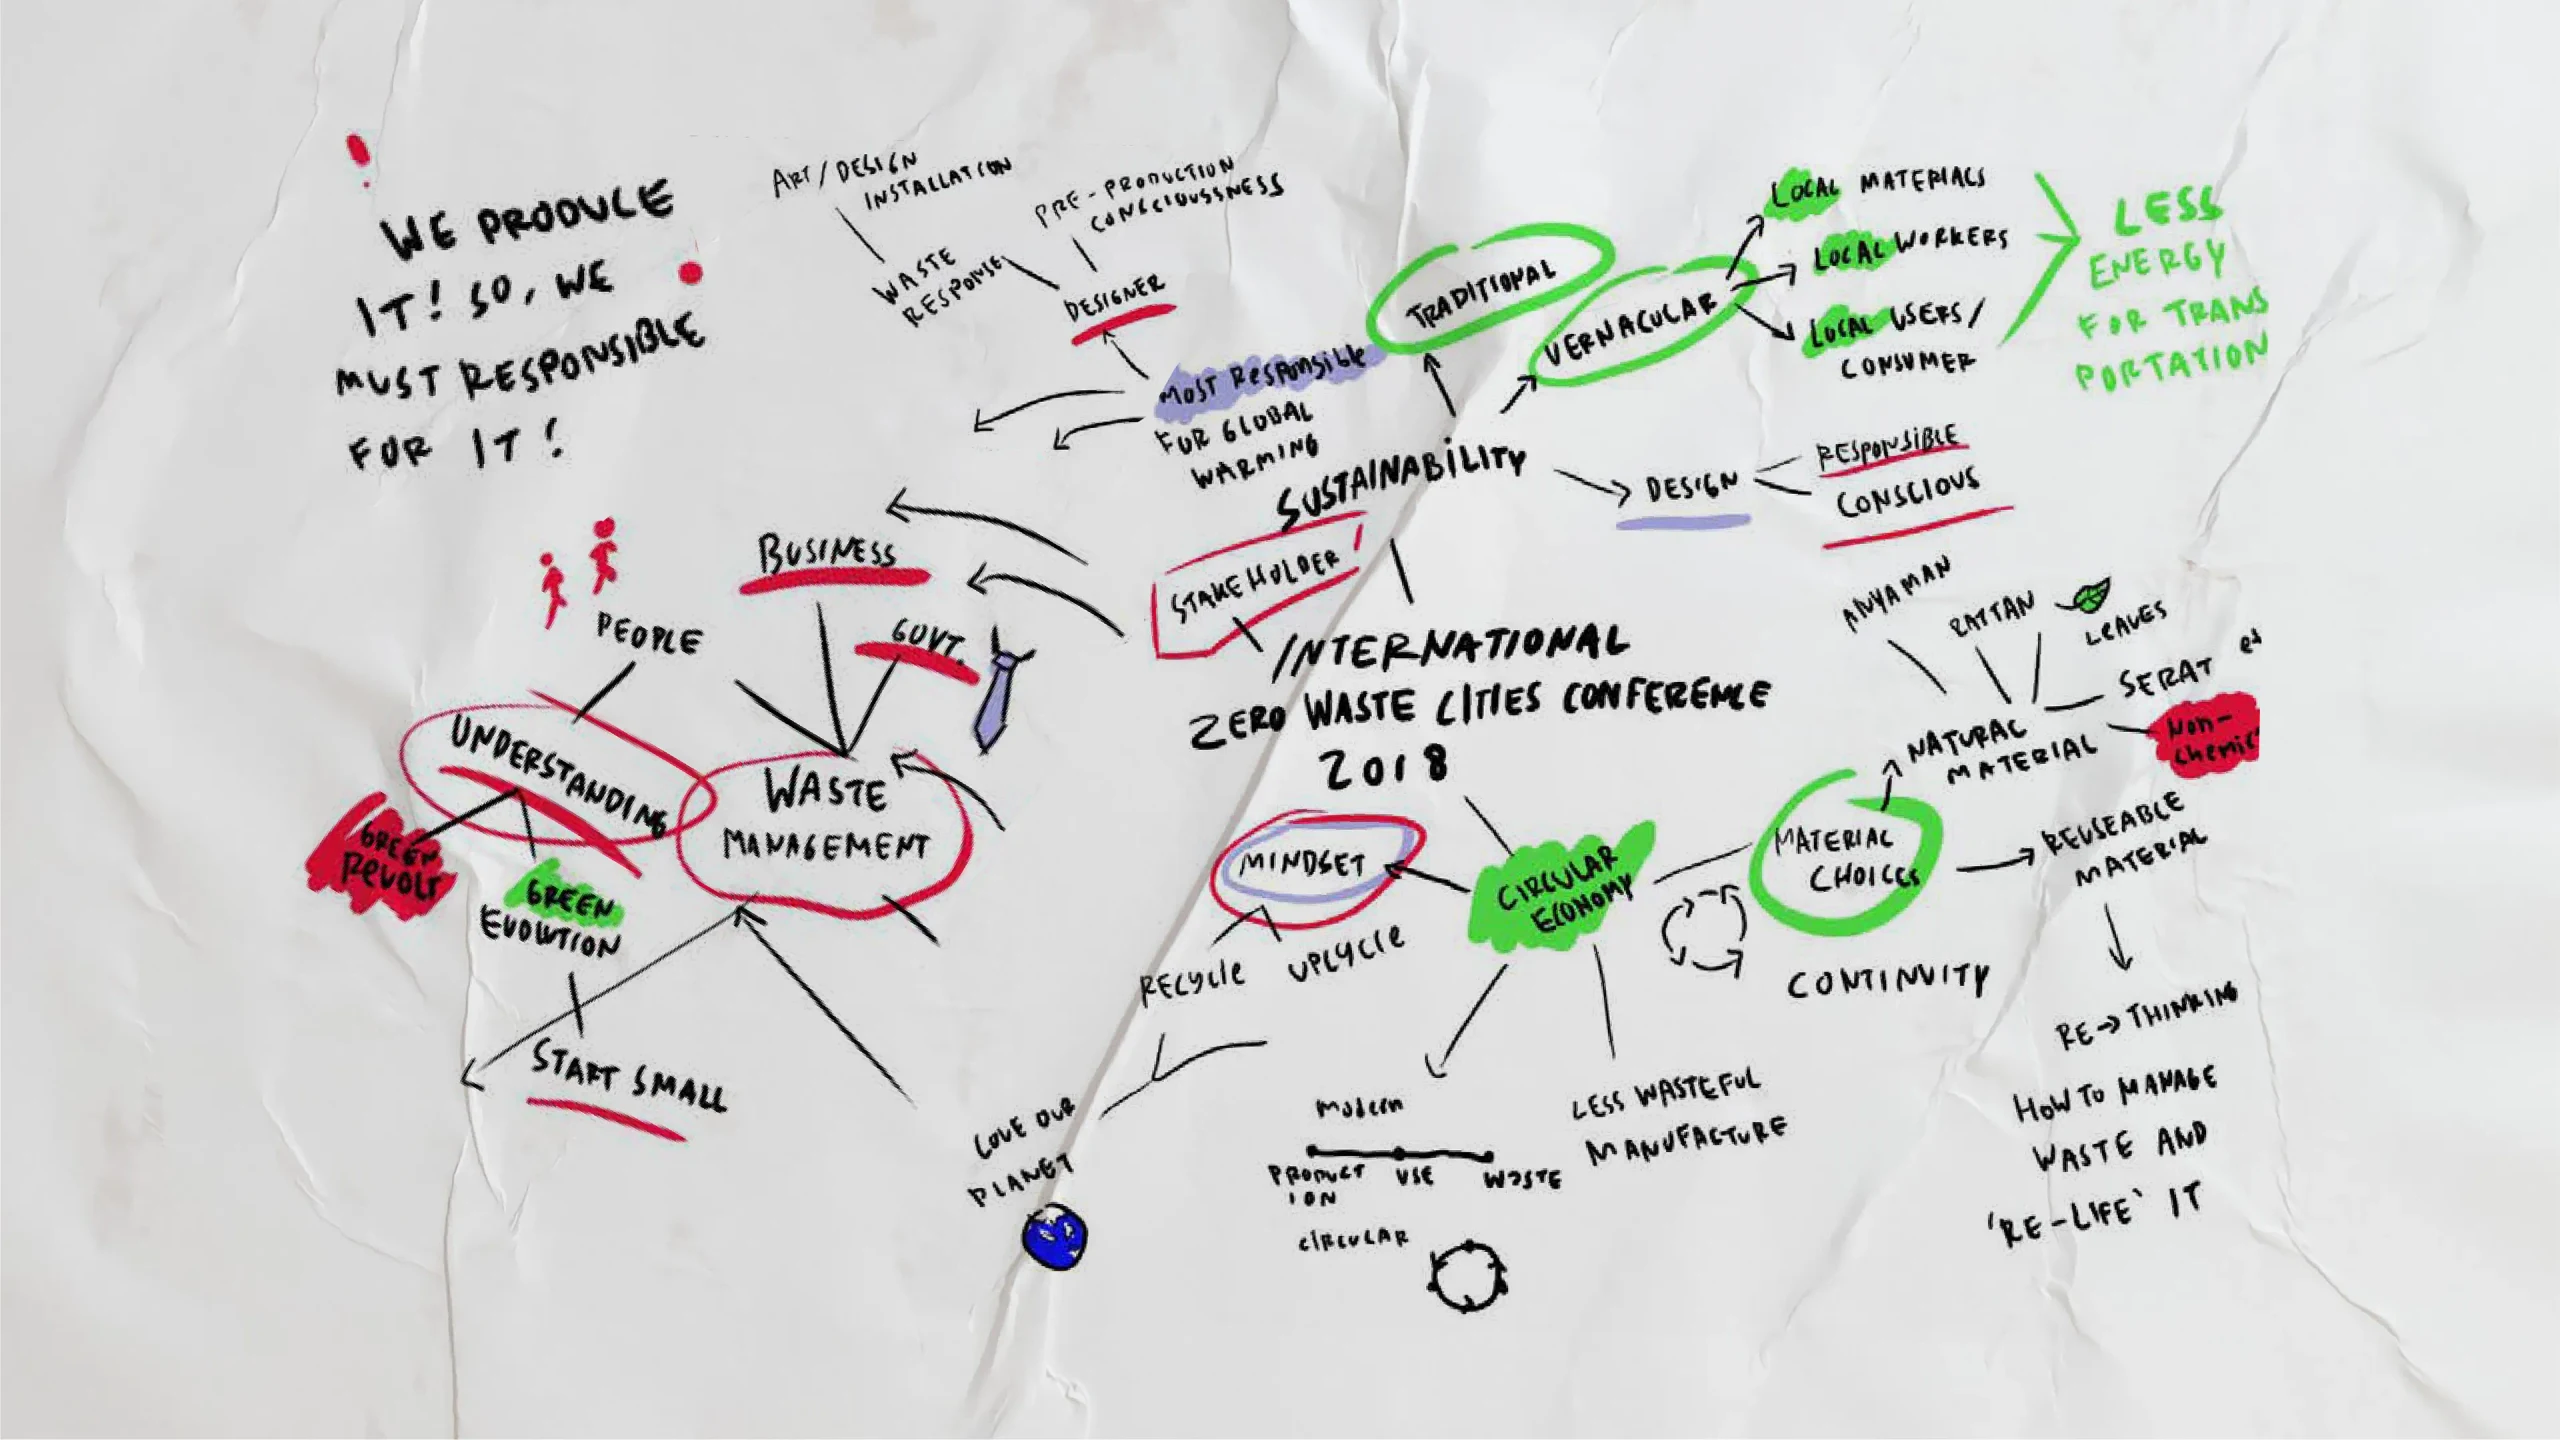 WE PRODUCE
IT! SO, WE
MUST RESPONSIBLE
FOR IT!
ART/DESIGN
INSTALLATION
PRE-PRODUCTION
CONSCIOUSSNESS
WASTE
RESPONSE
DESIGNER
MOST RESPONSIBLE
FOR GLOBAL
WARMING
TRADITIONAL
VERNACULAR
LOCAL MATERIALS
LOCAL WORKERS
LOCAL USERS/
CONSUMER
LESS
ENERGY
FOR TRANS
PORTATION
SUSTAINABILITY
DESIGN
RESPONSIBLE
CONSCIOUS
STAKEHOLDER
INTERNATIONAL
ZERO WASTE CITIES CONFERENCE
2018
BUSINESS
GOVT.
PEOPLE
UNDERSTANDING
WASTE
MANAGEMENT
GREEN
REVOLT
GREEN
EVOLUTION
START SMALL
ANYAMAN
RATTAN
LEAVES
SERAT
NATURAL
MATERIAL
Non-
MINDSET
RECYCLE
UPCYCLE
CIRCULAR
ECONOMY
MATERIAL
CHOICES
REUSEABLE
MATERIAL
CONTINUITY
RE→THINKING
HOW TO MANAGE
WASTE AND
'RE-LIFE' IT
LOVE OUR
PLANET
Modern
PRODUCT
ION
USE
WASTE
CIRCULAR
LESS WASTEFUL
MANUFACTURE